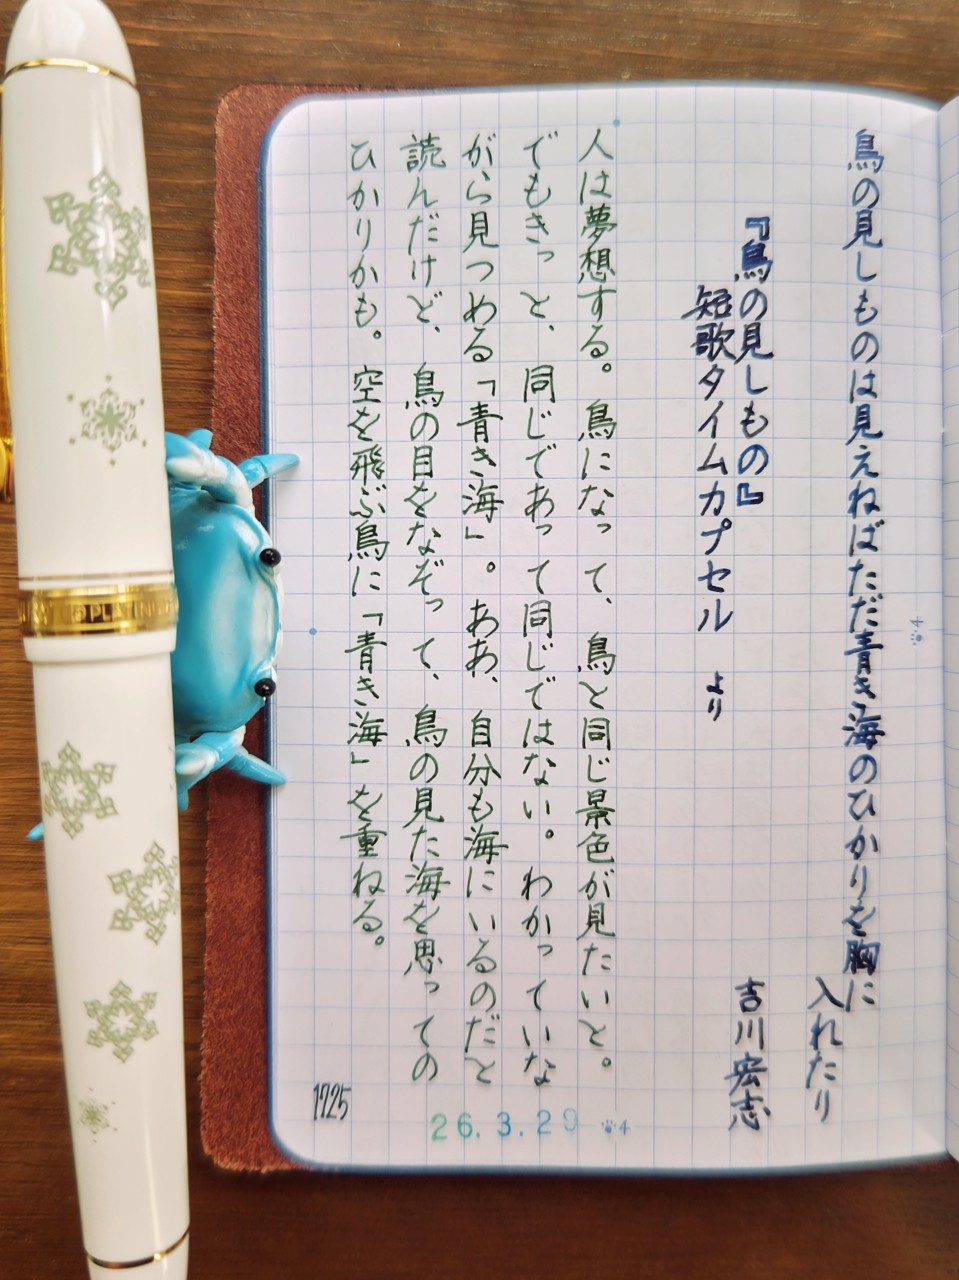 鳥の見しものは見えねばただ青き海のひかりを胸に
入れたり
『鳥の見しもの』
吉川宏志
短歌タイムカプセル より
人は夢想する。鳥になって、鳥と同じ景色が見たいと。
でもきっと、同じであって同じではない。わかっていな
がら見つめる「青き海」。ああ、自分も海にいるのだと
読んだけど、鳥の目をなぞって、鳥の見た海を思っての
ひかりかも。空を飛ぶ鳥に「青き海」を重ねる。
1725
26.3.29
4
4
PLATINUM